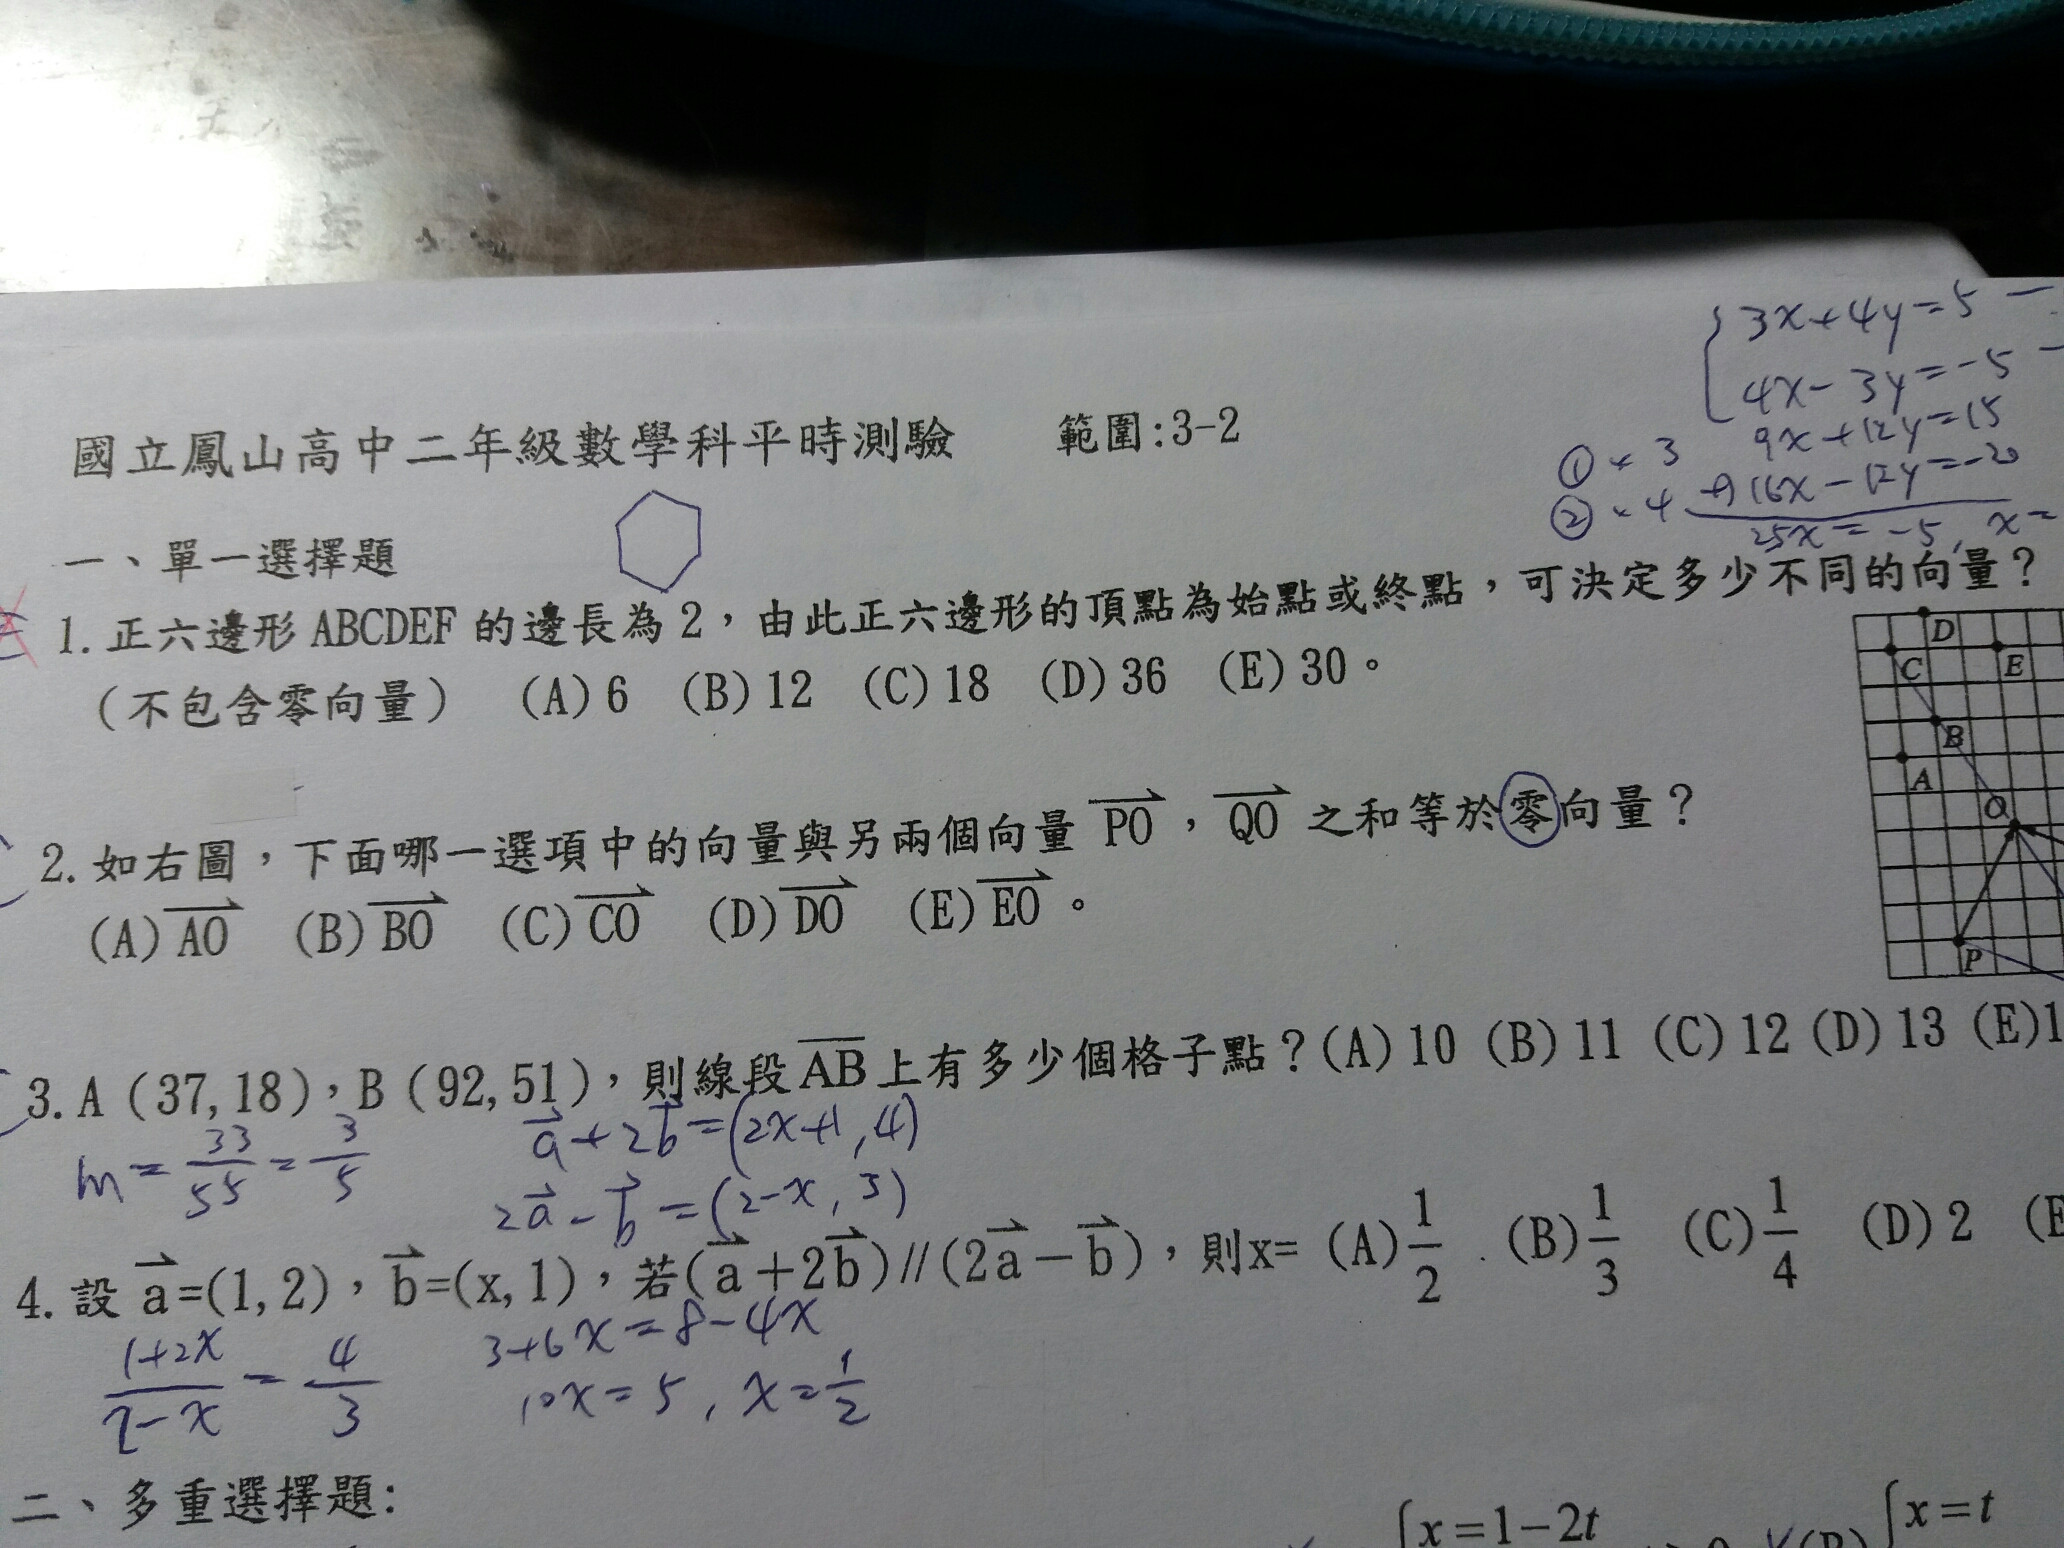 3x+4y=5 —
4x-3y=-5 —
國立鳳山高中二年級數學科平時測驗 範圍:3-2
①×3 9x+12y=15
②×4 +) 16x-12y=-20
25x=-5, x=
一、單一選擇題
1.正六邊形 ABCDEF 的邊長為 2,由此正六邊形的頂點為始點或終點,可決定多少不同的向量?
(不包含零向量) (A)6 (B)12 (C)18 (D)36 (E)30。
D
C E
B
A
O
P
2.如右圖,下面哪一選項中的向量與另兩個向量 PO,QO 之和等於零向量?
(A)AO (B)BO (C)CO (D)DO (E)EO。
3.A(37,18),B(92,51),則線段AB上有多少個格子點?(A)10 (B)11 (C)12 (D)13 (E)1
m=33/55=3/5 a+2b=(2x+1,4)
2a-b=(2-x,3)
4.設 a=(1,2),b=(x,1),若(a+2b)//(2a-b),則x= (A)1/2 (B)1/3 (C)1/4 (D)2 (E
(1+2x)/(2-x)=4/3 3+6x=8-4x
10x=5, x=1/2
二、多重選擇題:
x=1-2t x=t